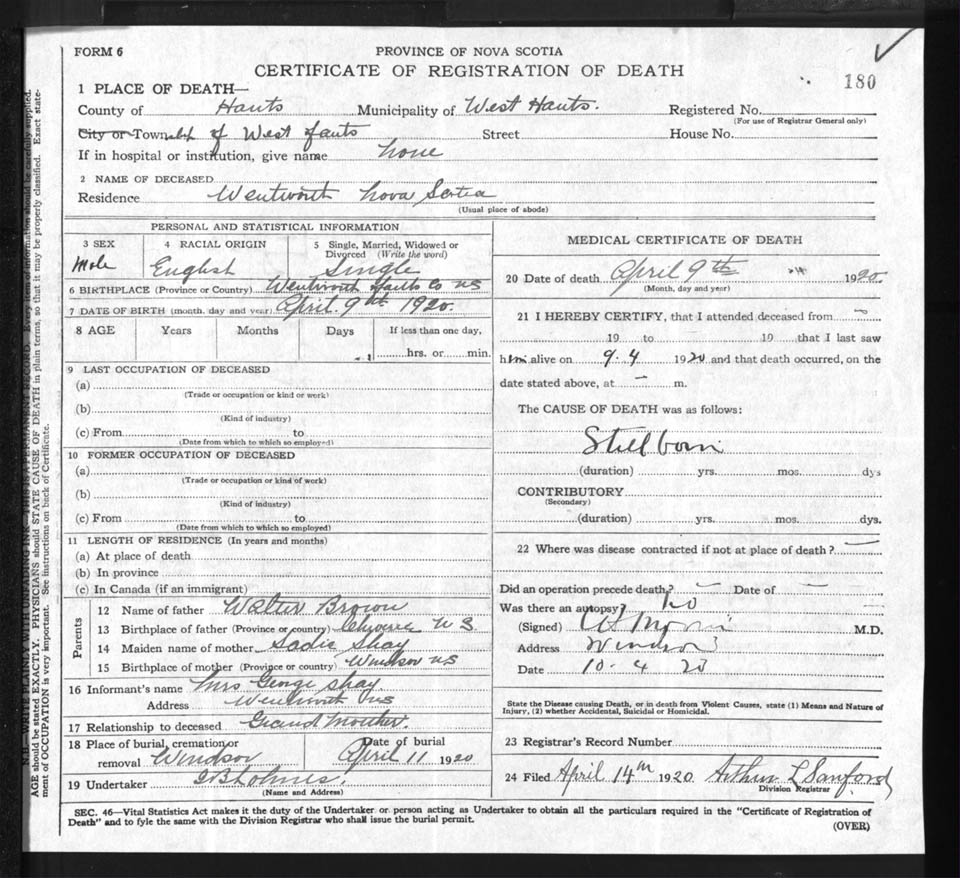 FORM 6
PROVINCE OF NOVA SCOTIA
CERTIFICATE OF REGISTRATION OF DEATH
180
1 PLACE OF DEATH—
County of Hants Municipality of West Hants. Registered No.
(For use of Registrar General only)
City or Township of West Hants Street House No.
If in hospital or institution, give name none
2 NAME OF DECEASED
Residence Wentworth Nova Scotia
(Usual place of abode)
PERSONAL AND STATISTICAL INFORMATION
3 SEX 4 RACIAL ORIGIN 5 Single, Married, Widowed or Divorced (Write the word)
Male English Single
6 BIRTHPLACE (Province or Country) Wentworth Hants Co NS
7 DATE OF BIRTH (month, day and year) April 9th 1920.
8 AGE Years Months Days If less than one day,
hrs. or min.
9 LAST OCCUPATION OF DECEASED
(a)
(Trade or occupation or kind or work)
(b)
(Kind of industry)
(c) From to
(Date from which to which so employed)
10 FORMER OCCUPATION OF DECEASED
(a)
(Trade or occupation or kind of work)
(b)
(Kind of industry)
(c) From to
(Date from which to which so employed)
11 LENGTH OF RESIDENCE (In years and months)
(a) At place of death
(b) In province
(c) In Canada (if an immigrant)
Parents
12 Name of father Walter Brown
13 Birthplace of father (Province or country) N S.
14 Maiden name of mother Sadie Shay
15 Birthplace of mother (Province or country) Windsor NS
16 Informant's name Mrs George Shay.
Address Wentworth NS
17 Relationship to deceased Grand Mother.
18 Place of burial, cremation or removal Windsor Date of burial April 11 1920
19 Undertaker
(Name and Address)
MEDICAL CERTIFICATE OF DEATH
20 Date of death April 9th 1920
(Month, day and year)
21 I HEREBY CERTIFY, that I attended deceased from
19 to 19 that I last saw
him alive on 9.4 1920 and that death occurred, on the
date stated above, at — m.
The CAUSE OF DEATH was as follows:
Still born
(duration) yrs. mos. dys
CONTRIBUTORY
(Secondary)
(duration) yrs. mos. dys.
22 Where was disease contracted if not at place of death? —
Did an operation precede death? — Date of —
Was there an autopsy? No
(Signed) M.D.
Address Windsor
Date 10.4 20
State the Disease causing Death, or in death from Violent Causes, state (1) Means and Nature of
Injury, (2) whether Accidental, Suicidal or Homicidal.
23 Registrar's Record Number
24 Filed April 14th 1920 Arthur L Sanford
Division Registrar
SEC. 46—Vital Statistics Act makes it the duty of the Undertaker or person acting as Undertaker to obtain all the particulars required in the "Certificate of Registration of
Death" and to fyle the same with the Division Registrar who shall issue the burial permit.
(OVER)
N.B.—WRITE PLAINLY WITH UNFADING INK—THIS IS A PERMANENT RECORD. Every item of information should be carefully supplied.
AGE should be stated EXACTLY. PHYSICIANS should STATE CAUSE OF DEATH in plain terms, so that it may be properly classified. Exact state-
ment of OCCUPATION is very important. See instructions on back of Certificate.